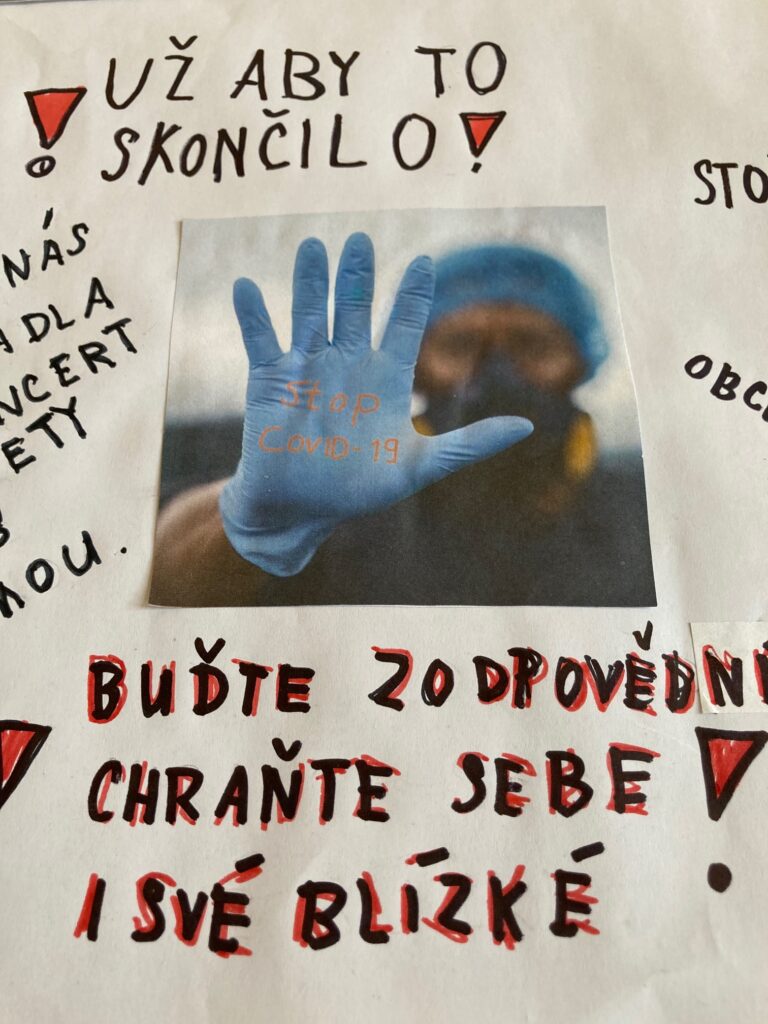 ! UŽ ABY TO
SKONČILO!
NÁS
ADLA
NCERT
ETY
KOU.
STO
OBC
Stop
COVID-19
BUĎTE ZODPOVĚDNÍ
CHRAŇTE SEBE
I SVÉ BLÍZKÉ !